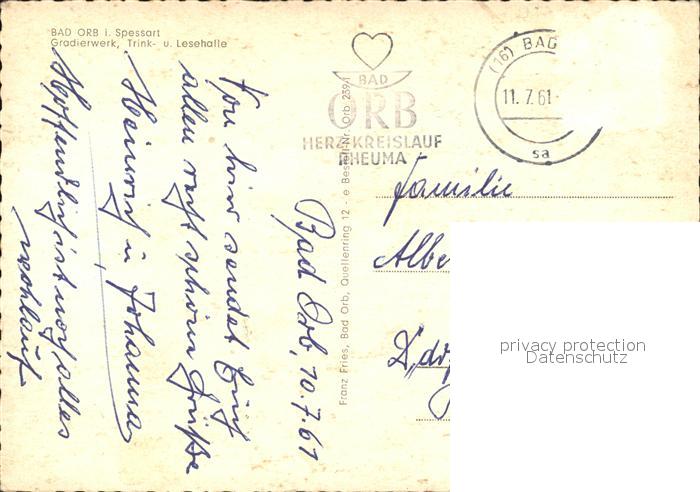 BAD ORB i. Spessart
Gradierwerk, Trink- u. Lesehalle
BAD
ORB
HERZ-KREISLAUF
RHEUMA
(16) BAD
11.7.61
sa
Franz Fries, Bad Orb, Quellenring 12 - e Bestell-Nr. Orb 239/1
Bad Orb, 10.7.61
Von hier sendet Euch
allen recht schöne Grüße
Heinrich u. Johanna
Hoffentlich ist noch alles
wohlauf
Familie
Albe
privacy protection
Datenschutz